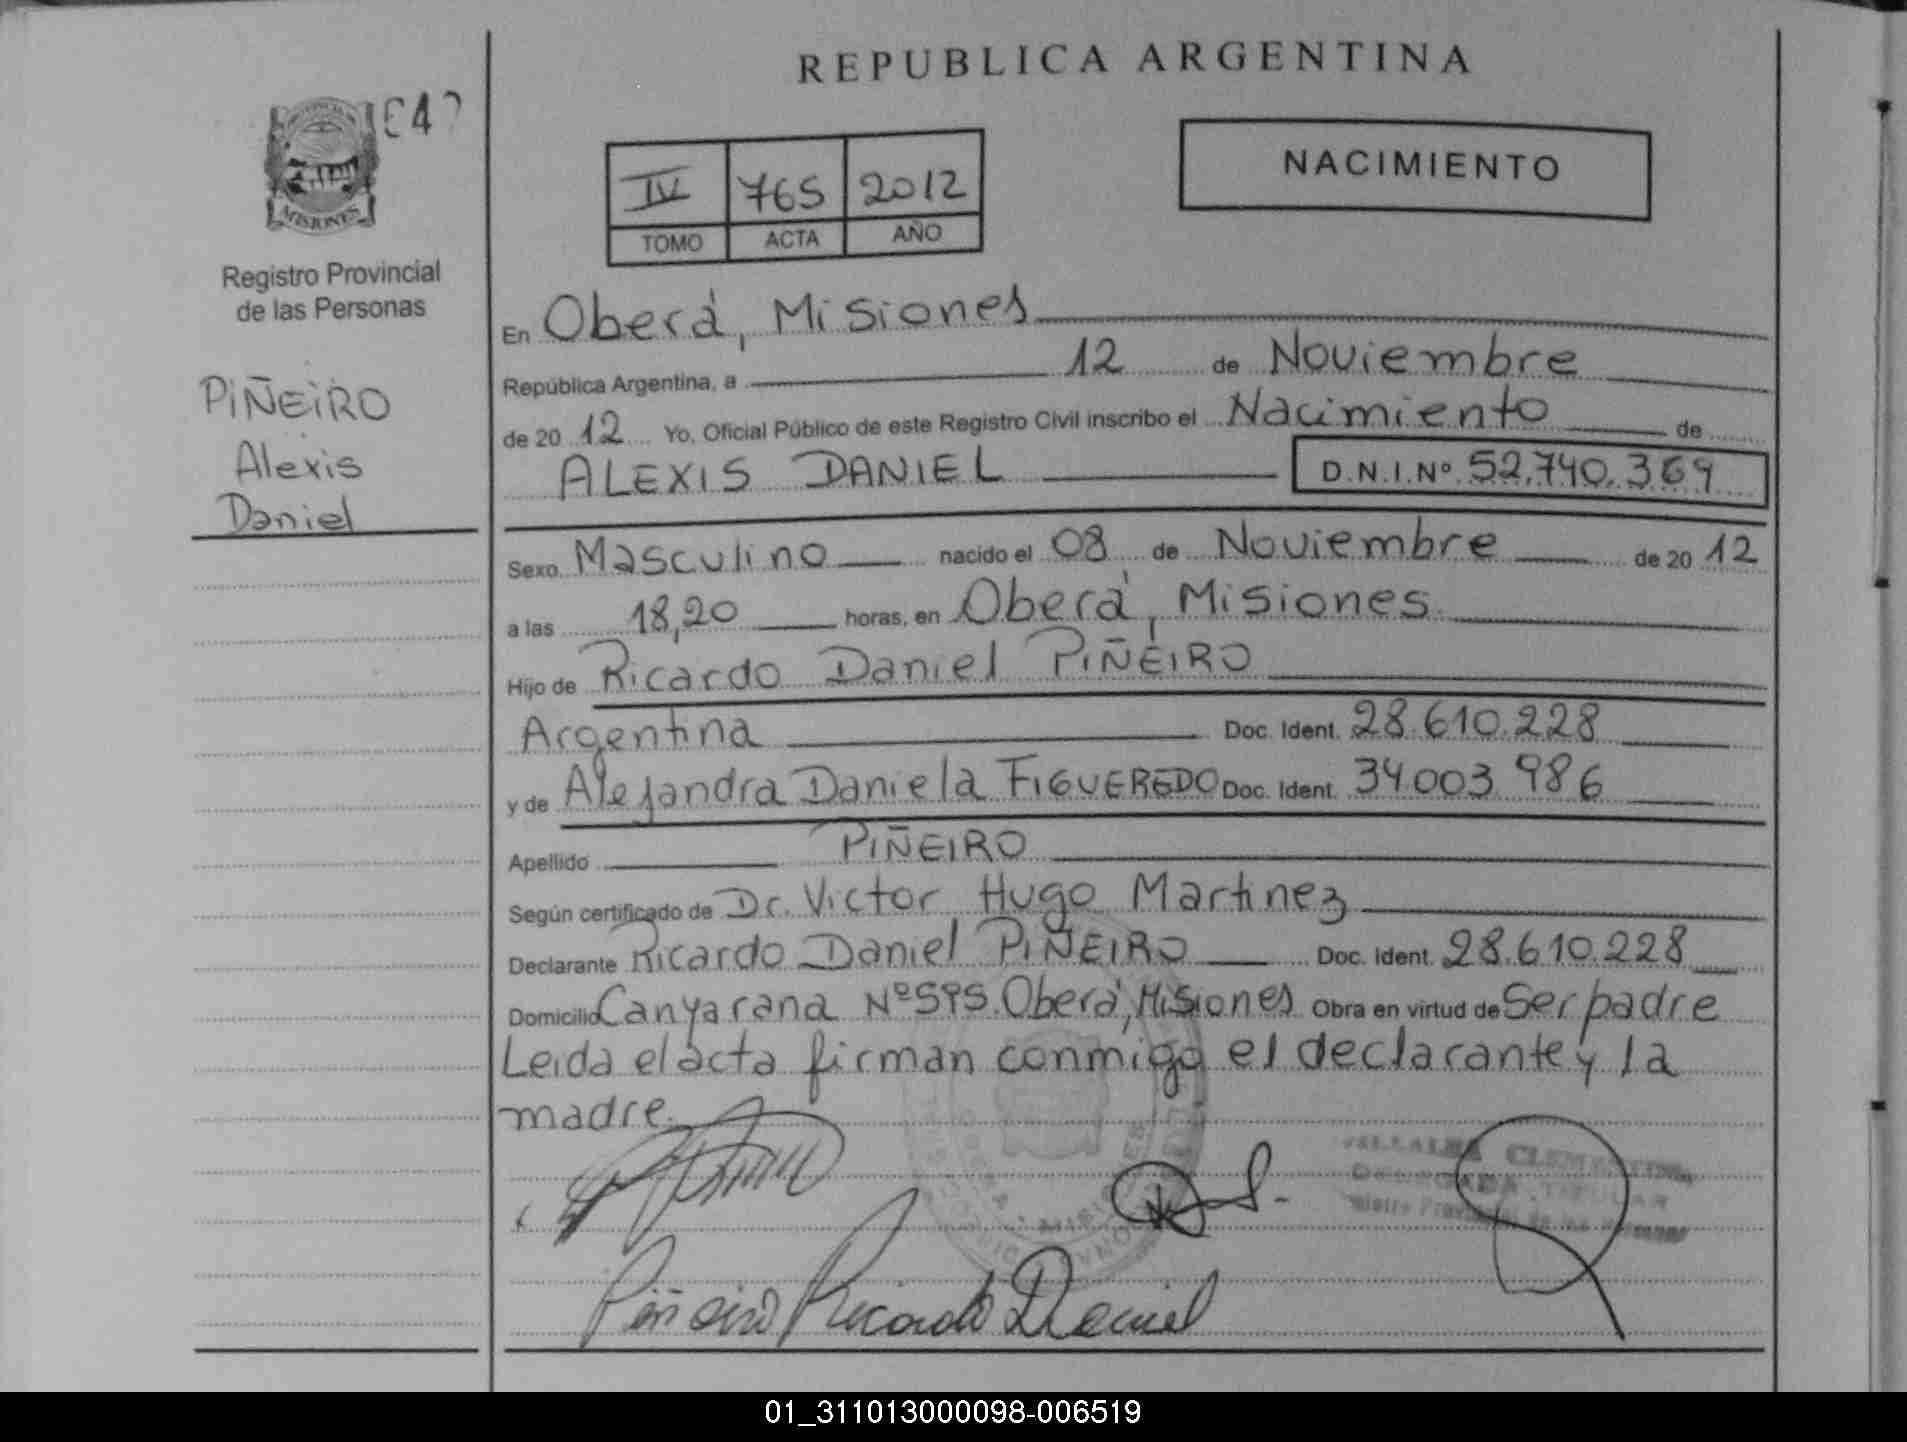 REPUBLICA ARGENTINA
NACIMIENTO
IV 765 2012
TOMO ACTA AÑO
MISIONES
Registro Provincial
de las Personas
PIÑEIRO
Alexis
Daniel
En Oberá, Misiones
República Argentina, a 12 de Noviembre
de 20 12 Yo, Oficial Público de este Registro Civil inscribo el Nacimiento de
ALEXIS DANIEL D.N.I.Nº 52.740.369
Sexo Masculino nacido el 08 de Noviembre de 20 12
a las 18,20 horas, en Oberá, Misiones
Hijo de Ricardo Daniel PIÑEIRO
Argentina Doc. Ident. 28.610.228
y de Alejandra Daniela FIGUEREDO Doc. Ident. 34.003.986
Apellido PIÑEIRO
Según certificado de Dr. Victor Hugo Martinez
Declarante Ricardo Daniel PIÑEIRO Doc. Ident. 28.610.228
Domicilio Canyarana Nº 595. Oberá, Misiones Obra en virtud de Ser padre
Leida el acta firman conmigo el declarante y la
madre.
VILLALBA CLEMENTINA
DELEGADA TITULAR
Registro Provincial de las Personas
Piñeiro Ricardo Daniel
01_311013000098-006519